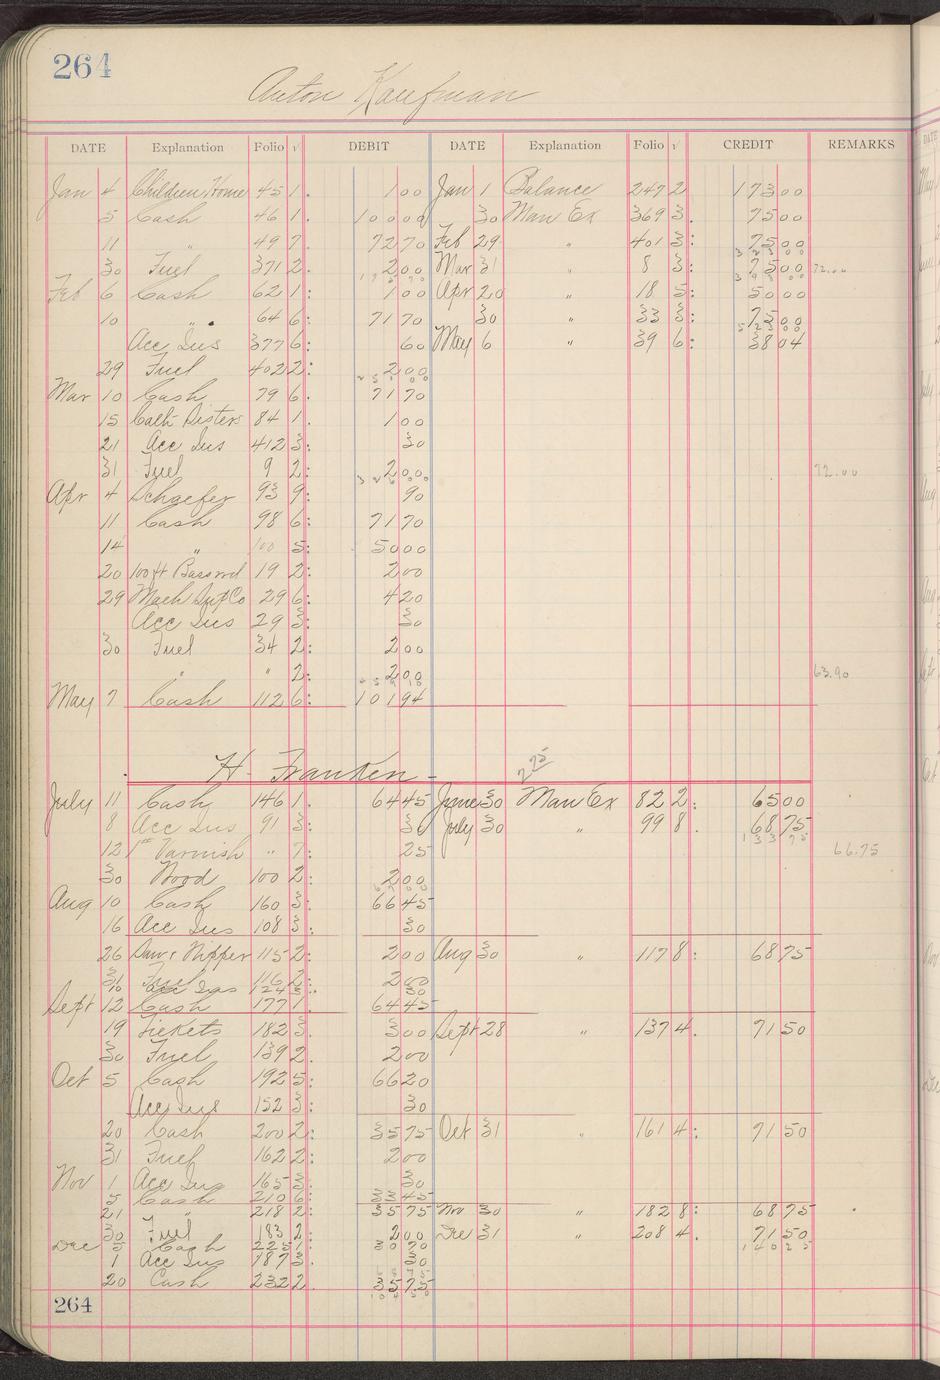 264
Anton Kaufman
DATE Explanation Folio √ DEBIT DATE Explanation Folio √ CREDIT REMARKS
Jan 4 Children Home 45 1. 1 00 Jan 1 Balance 247 2 173 00
5 Cash 46 1. 100 00 30 Man Ex 369 3. 75 00
11 " 49 7. 72 70 Feb 29 " 401 3: 75 00
30 Fuel 371 2. 2 00 Mar 31 " 8 3: 75 00 72.00
Feb 6 Cash 62 1: 1 00 Apr 20 " 18 5: 50 00
10 " 64 6: 71 70 30 " 33 3: 75 00
Acc Ins 377 6: 60 May 6 " 39 6: 38 04
29 Fuel 402 2: 2 00
Mar 10 Cash 79 6. 71 70
15 Cath Sisters 84 1. 1 00
21 Acc Ins 412 3: 30
31 Fuel 9 2: 2 00 72.00
Apr 4 Schaefer 93 9: 90
11 Cash 98 6: 71 70
14 " 100 5: 50 00
20 100 ft Basswd 19 2: 2 00
29 Mach Sup Co 29 6: 4 20
Acc Ins 29 3: 30
30 Fuel 34 2: 2 00
" " 2: 2 00 63.90
May 7 Cash 112 6: 101 94
H. Franken -
2 75
July 11 Cash 146 1. 64 45 June 30 Man Ex 82 2: 65 00
8 Acc Ins 91 3: 30 July 30 " 99 8. 68 75
133 75
12 1 pt Varnish " 7: 25 66.75
30 Wood 100 2: 2 00
Aug 10 Cash 160 3: 66 45
16 Acc Ins 108 3: 30
26 Saw & Nipper 115 2: 2 00 Aug 30 " 117 8: 68 75
31 Fuel 116 2: 2 00
10 Acc Ins 124 3: 30
Sept 12 Cash 177 1. 64 45
19 Tickets 182 3. 3 00 Sept 28 " 137 4. 71 50
30 Fuel 139 2. 2 00
Oct 5 Cash 192 5: 66 20
Acc Ins 152 3: 30
20 Cash 200 2: 35 75 Oct 31 " 161 4: 71 50
31 Fuel 162 2: 2 00
Nov 1 Acc Ins 165 3. 30
5 Cash 210 6: 33 45
21 " 218 2: 35 75 Nov 30 " 182 8: 68 75
30 Fuel 183 2: 2 00 Dec 31 " 208 4. 71 50
Dec 5 Cash 225 1: 30 70 140 25
1 Acc Ins 187 3. 30
20 Cash 232 2. 35 75
264